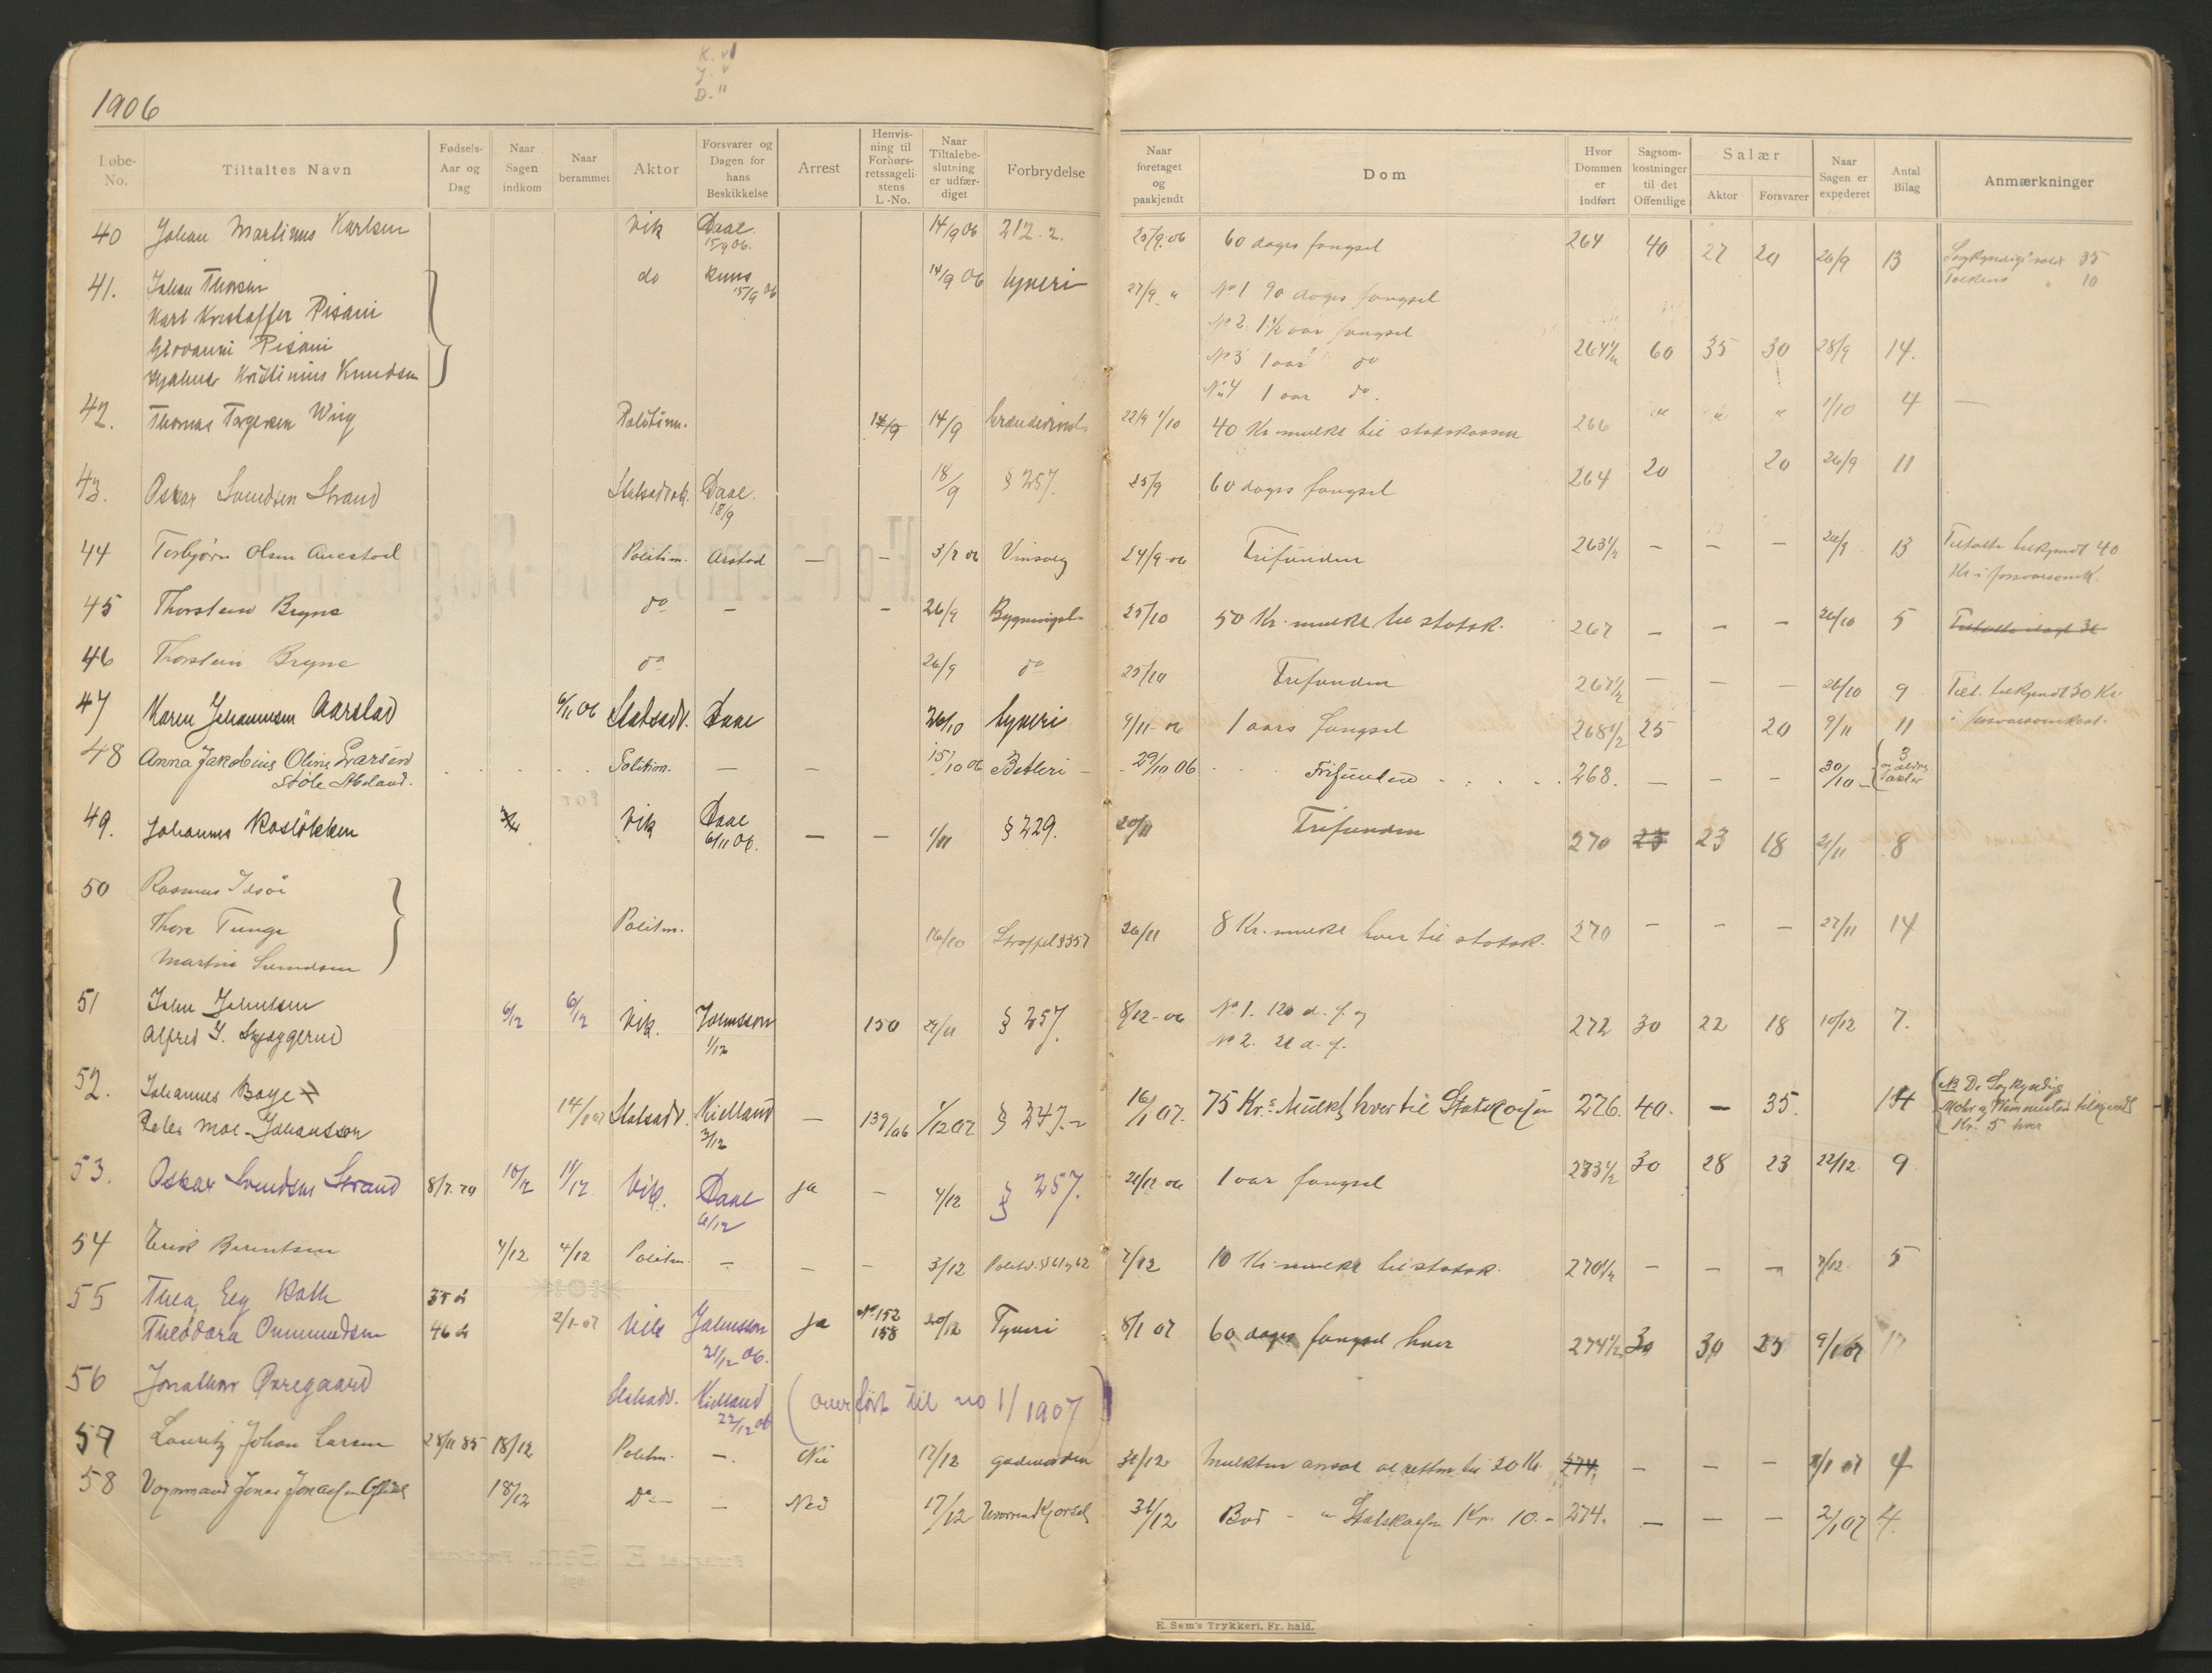 1906
K. v
J. v
D. "
Løbe-No. Tiltaltes Navn Fødsels-Aar og Dag Naar Sagen indkom Naar berammet Aktor Forsvarer og Dagen for hans Beskikkelse Arrest Henvisning til Forhørsretssagelistens L.-No. Naar Tiltalebeslutning er udfærdiget Forbrydelse Naar foretaget og paakjendt Dom Hvor Dommen er indført Sagsomkostninger til det Offentlige Salær Aktor Forsvarer Naar Sagen er expederet Antal Bilag Anmærkninger
40 Johan Martinus Karlsen Vik Daae 15/9 06. 14/9 06 212.2. 25/9.06 60 dages fængsel 264 40 27 20 26/9 13 35
10
41. Johan Thorsen do 15/9 06 14/9 06 tyveri 27/9 " No 1 90 dages fængsel
Karl Kristoffer Pisani No 2 1 1/2 aar fængsel
Giovanni Pisani No 3 1 aar do 264 1/2 60 35 30 28/9 14.
Hjalmar Kristinius Knudsen No 4 1 aar do.
42. Thomas Torgersen Wiig Politim. 14/9 14/9 22/9 1/10 40 Kr. mulkt til statskassen 266 " " " 1/10 4 —
43. Oskar Svendsen Strand Statsadvok. Daae. 18/9 18/9 § 257. 25/9 60 dages fængsel 264 20 20 26/9 11
44 Torbjørn Olsen Auestad Politim. Arstad — — 3/8 06 Vinsalg 24/9-06 Frifunden 263 1/2 — — — 13 Tiltalte tilkjendt 40
Kr. i forsvarsomk.
45 Thorstein Bryne do — — 26/9 Bygningsl. 25/10 50 Kr. mulkt til statsk. 267 — — — 26/10 5
46 Thorstein Bryne do 26/9 do 25/10 Frifunden 267 1/2 — — — 26/10 9 Tilt. tilkjendt 30 Kr.
i forsvarsomkost.
47 Karen Johannesen Aarstad 6/11 06 Statsadv. Daae 26/10 tyveri 9/11-06 1 aars fængsel 268 1/2 25 20 9/11 11
48 Anna Jakobine Oline Larsen Politim. — — 15/10 06 Betleri — 29/10 06 Frifunden 268. — — — 30/10 3 og ældre akter
Støle
49. Johannes Vik Daae 6/11 06. — — 1/11 § 229. 20/11 Frifunden 270 25 23 18 21/11 8
50 Rasmus Idsøe
Thore Tunge Politm. 16/10 Straffel § 357 26/11 8 Kr. mulkt hver til statsk. 270 — — — 27/11 14
Martin Svendsen
51 John 6/12 6/12 Vik. Johnsson 1/12 150 29/11 § 257. 8/12-06 No 1. 120 d. f. og 272 30 22 18 10/12 7.
Alfred J. No 2. 21 d. f.
52. Johannes Boye 14/1 07 Statsadv. Kielland 3/12 — 139/06 § 247.- 16/1 07. 75 Kr.s Mulkt hver til Statskassen 276. 40. — 35. 14 NB De Sagkyndige
Peder Moe-Johansson Kr. 5 hver
53. Oskar Svendsen Strand 8/7.79 10/12 11/12 Vik. Daae 6/12 ja — 4/12 § 257. 21/12 06 1 aar fængsel 273 1/2 30 28 23 22/12 9
54 Erik Berentsen 4/12 4/12 Politm. — — — 3/12 7/12 10 Kr. mulkt til statsk. 270 1/2 — — — 7/12 5
55 Thea Eeg Roth 35 år
Theodora Ommundsen 46 år 2/1-07 Vik Johnsson 21/12 06. Ja No 152 158 20/12 Tyveri 8/1 07 60 dages fængsel hver 274 1/2 30 30 25 9/1 07
56 Jonathan Øvregaard Statsadv. Kielland 22/12 06 (overført til no 1/1907)
57 Lauritz Johan Larsen 28/11 85 18/12 Politm. —. Nei 17/12 gadeuorden 31/12 Mulkten ansat af retten til 20 Kr. 274. — — — 2/1 07 4
58 Vognmand Jonas 18/12 Do — — Nei 17/12 31/12 Bod - " Statskassen Kr. 10.- 274. — — — 2/1 07 4.
E. Sem's Trykkeri, Fr.hald.